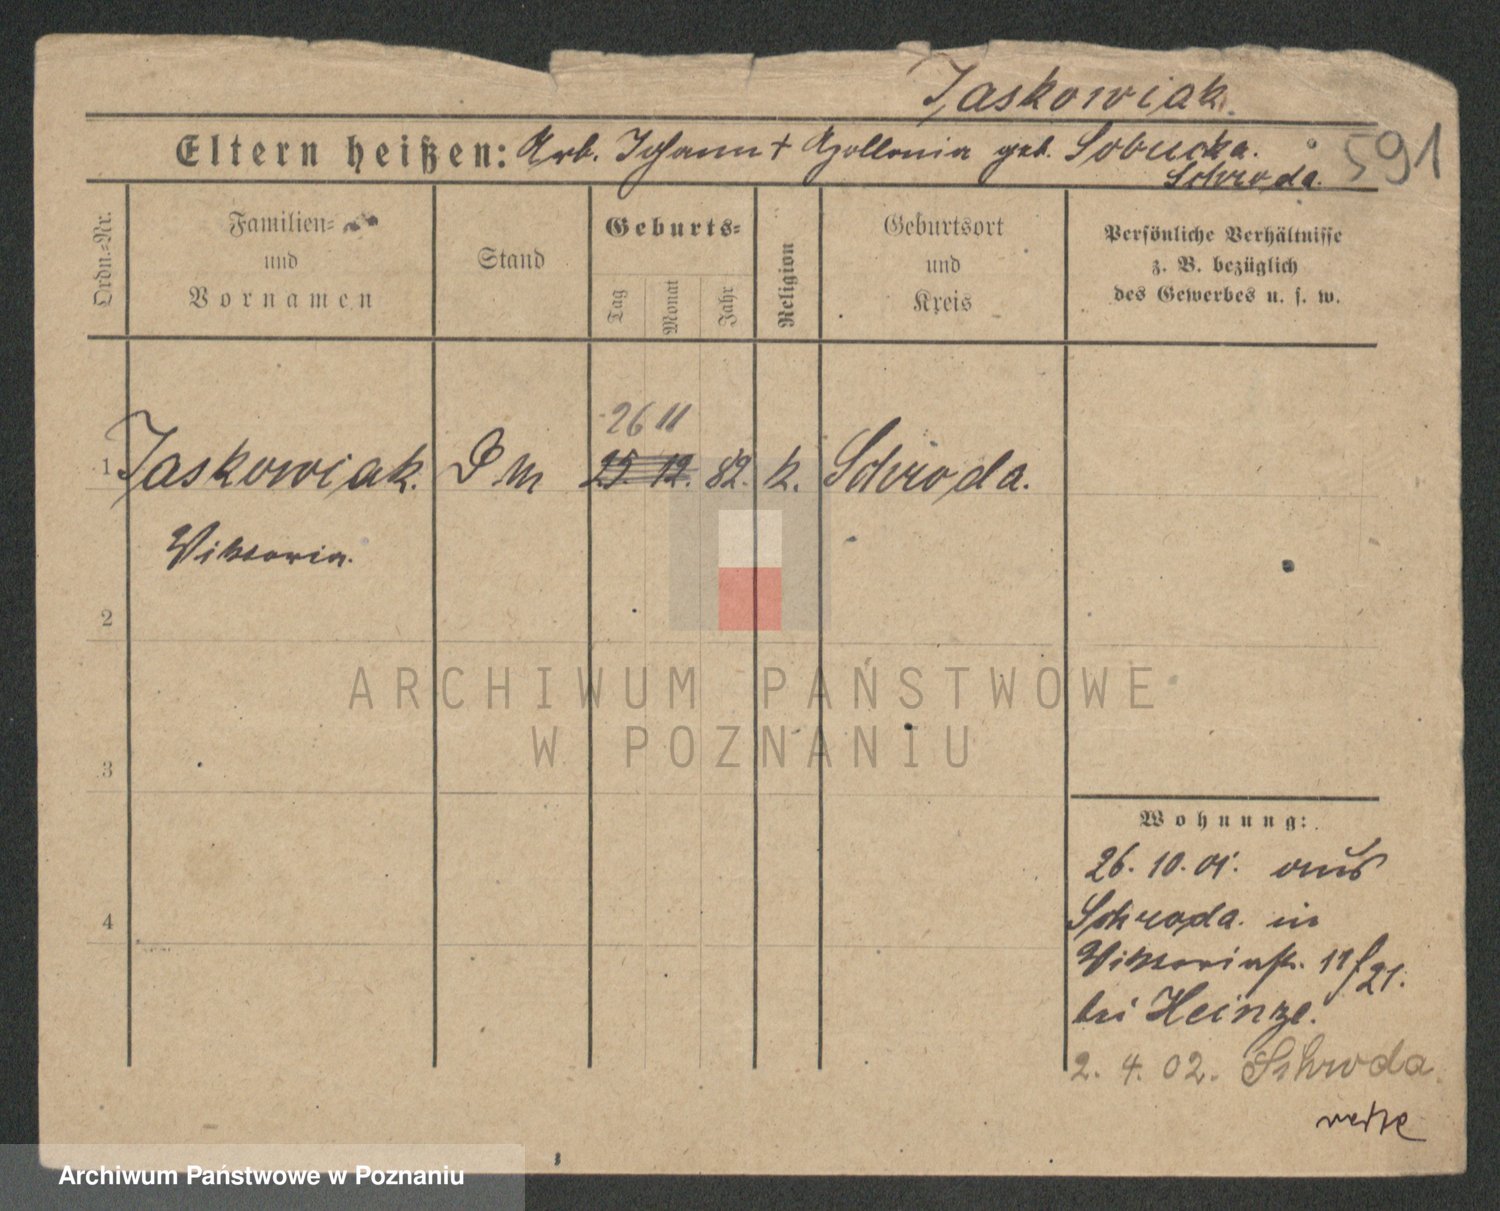 Jaskowiak.
Eltern heißen: Arb. Johann † Apollonia geb. Sobucka.
Schroda.
591
Ordn.-Nr.
Familien-
und
Vornamen
Stand
Geburts-
Tag
Monat
Jahr
Religion
Geburtsort
und
Kreis
Persönliche Verhältnisse
z. B. bezüglich
des Gewerbes u. s. w.
26 11
1 Jaskowiak. D M 25. 12. 82. k. Schroda.
Viktoria.
2
ARCHIWUM PAŃSTWOWE
W POZNANIU
3
Wohnung:
26. 10. 01. aus
4
Schroda. in
Viktoriastr. 11/21.
bei Heinze.
2. 4. 02. Schroda
Archiwum Państwowe w Poznaniu